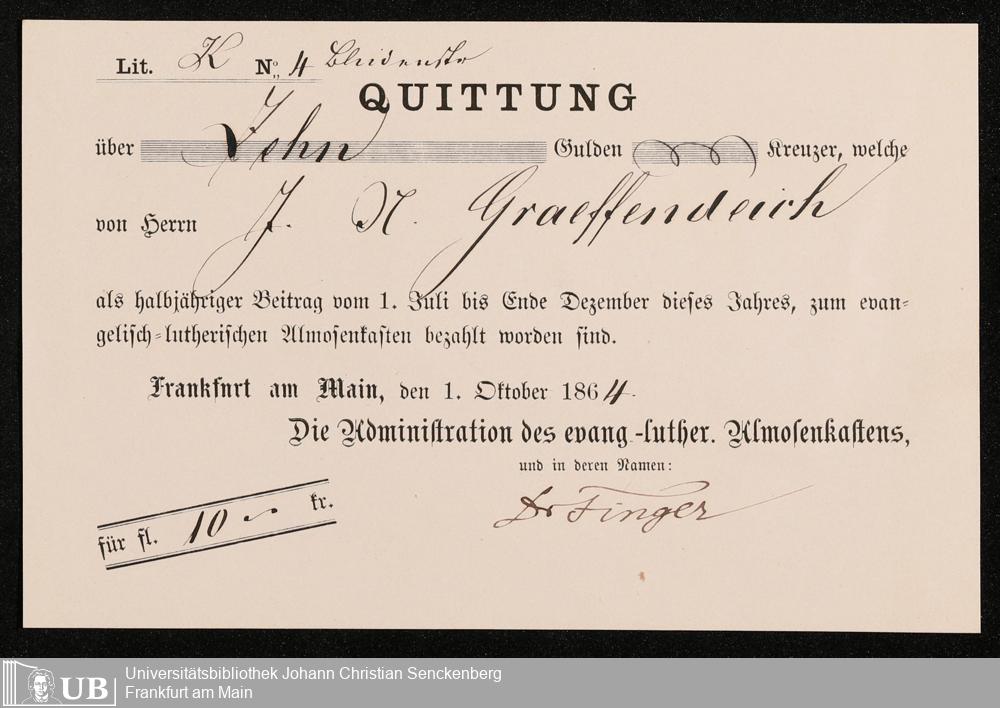 Lit. K No. 4 Bleidenstr
QUITTUNG
über Zehn Gulden Kreuzer, welche
von Herrn J. N. Graeffendeich
als halbjähriger Beitrag vom 1. Juli bis Ende Dezember dieses Jahres, zum evan=
gelisch=lutherischen Almosenkasten bezahlt worden sind.
Frankfurt am Main, den 1. Oktober 1864.
Die Administration des evang.-luther. Almosenkastens,
und in deren Namen:
Dr Finger
für fl. 10 ~ kr.
UB
Universitätsbibliothek Johann Christian Senckenberg
Frankfurt am Main